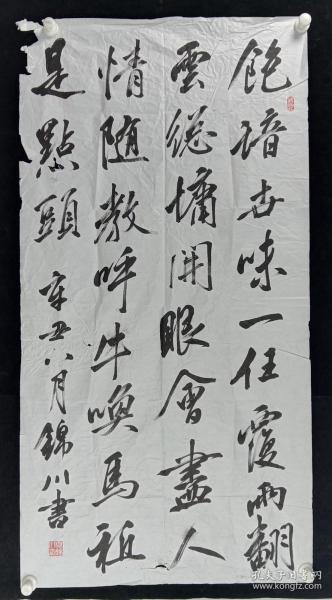 飽諳世味一任覆雨翻
雲總慵開眼會盡人
情随教呼牛喚馬祇
是點頭 辛丑八月錦川書
孔夫子旧书网